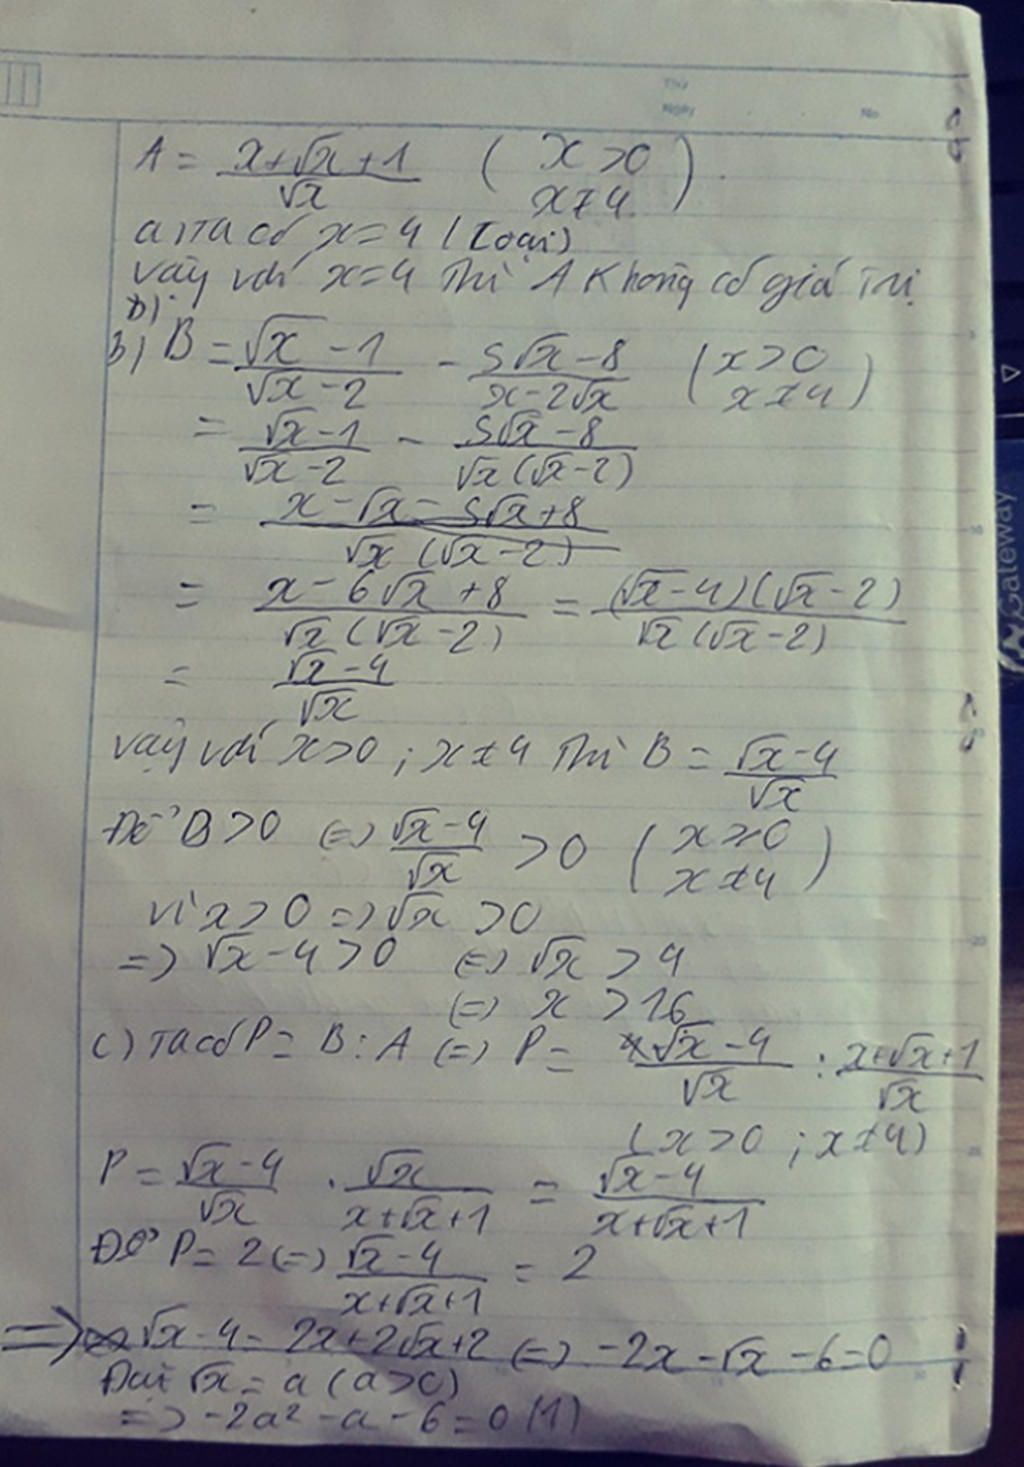 Thứ
Ngày
No
A = (x+√x+1)/√x ( x > 0
x ≠ 4 )
a) Ta có x = 4 ( Loại )
Vậy với x = 4 thì A không có giá trị
b)
b) B = (√x - 1)/(√x - 2) - (5√x - 8)/(x - 2√x) ( x > 0
x ≠ 4 )
= (√x - 1)/(√x - 2) - (5√x - 8)/(√x(√x - 2))
= (x - √x - 5√x + 8)/(√x(√x - 2))
= (x - 6√x + 8)/(√x(√x - 2)) = ((√x - 4)(√x - 2))/(√x(√x - 2))
= (√x - 4)/√x
Vậy với x > 0 ; x ≠ 4 thì B = (√x - 4)/√x
Để B > 0 (=) (√x - 4)/√x > 0 ( x > 0
x ≠ 4 )
Vì x > 0 => √x > 0
=> √x - 4 > 0 (=) √x > 4
(=) x > 16
c) Ta có P = B : A (=) P = (√x - 4)/√x : (x+√x+1)/√x
( x > 0 ; x ≠ 4 )
P = (√x - 4)/√x . √x/(x+√x+1) = (√x - 4)/(x+√x+1)
Để P = 2 (=) (√x - 4)/(x+√x+1) = 2
=> √x - 4 = 2x + 2√x + 2 (=) -2x - √x - 6 = 0
Đặt √x = a ( a > 0 )
=> -2a² - a - 6 = 0 (1)
Gateway